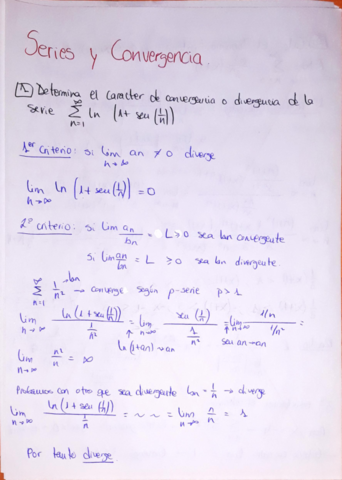 Series y Convergencia.
1 Determina el caracter de convergencia o divergencia de la
serie ∞ Σ n=1 ln (1 + sen (1/n))
1er criterio: si lim n→∞ an ≠ 0 diverge
lim n→∞ ln (1 + sen (1/n)) = 0
2º criterio: si lim an/bn = L ≥ 0 sea ban convergente
si lim an/bn = L ≥ 0 sea ban divergente.
∞ Σ n=1 1/n² → bn converge según p-serie p > 1
lim n→∞ ln (1 + sen (1/n)) / 1/n² = lim n→∞ sen (1/n) / 1/n² = lim n→∞ 1/n / 1/n² =
ln (1+an) ~ an sen an ~ an
lim n→∞ n²/n = ∞
Probamos con otro que sea divergente bn = 1/n → diverge
lim n→∞ ln (1 + sen (1/n)) / 1/n = ~ ~ = lim n→∞ n/n = 1
Por tanto diverge